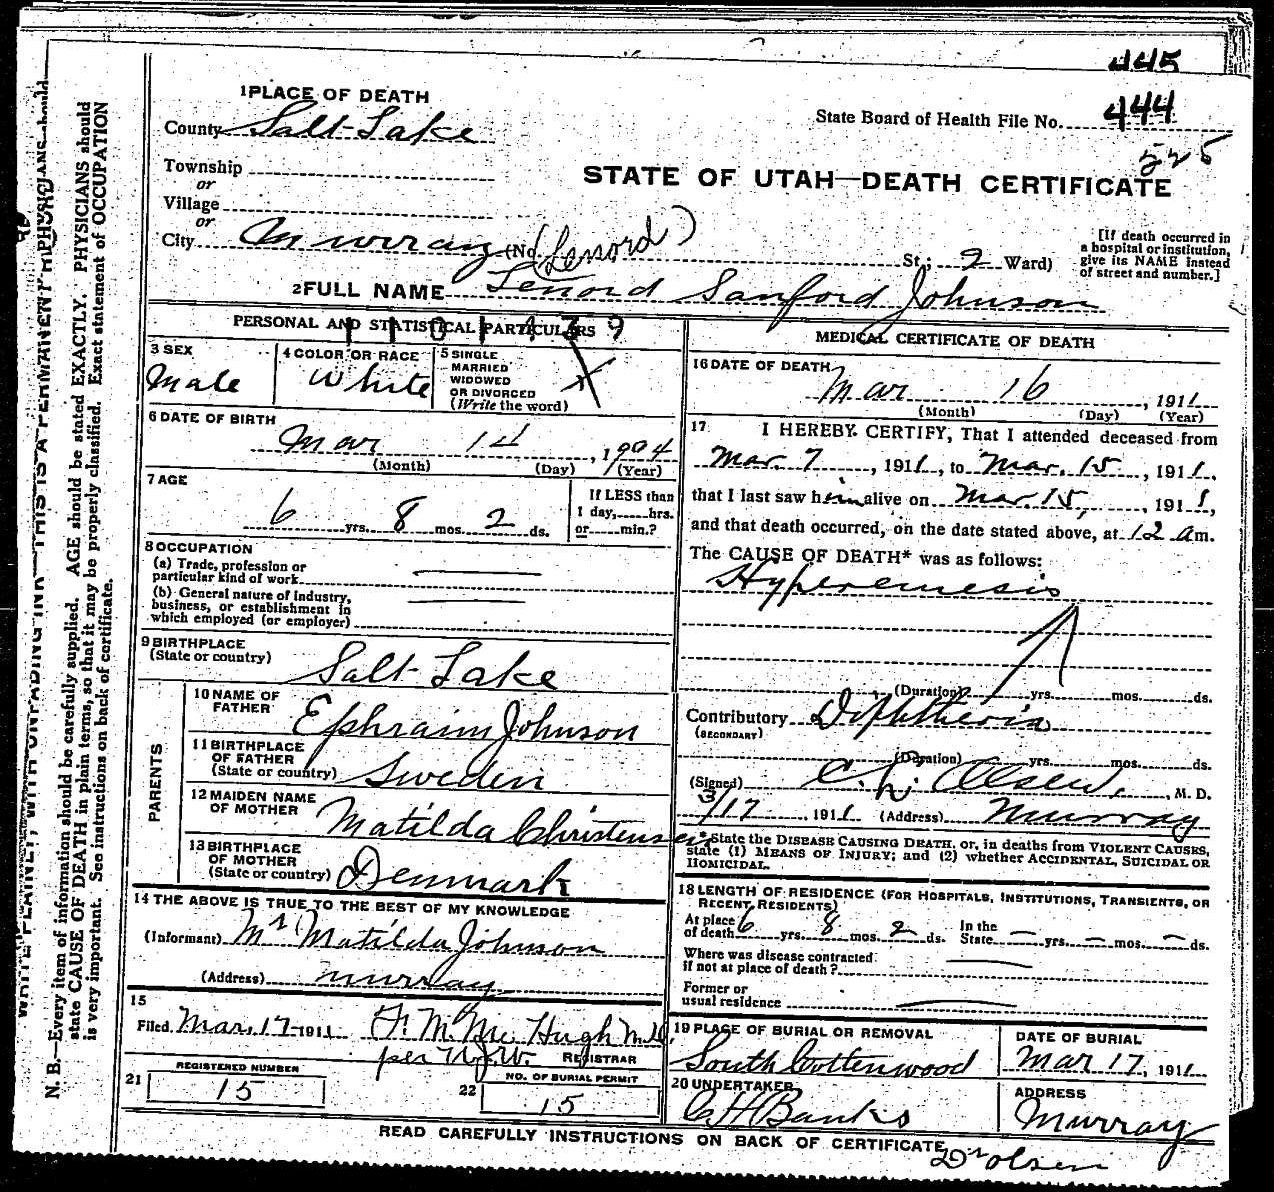 445
444
525
1 PLACE OF DEATH
County Salt Lake
State Board of Health File No.
Township
or
Village
or
City Murray (No. (Lenord) St.; 2 Ward)
STATE OF UTAH—DEATH CERTIFICATE
[If death occurred in
a hospital or institution,
give its NAME instead
of street and number.]
2 FULL NAME Lenord Sanford Johnson
PERSONAL AND STATISTICAL PARTICULARS
3 SEX
Male
4 COLOR OR RACE
White
5 SINGLE
MARRIED
WIDOWED
OR DIVORCED
(Write the word)
6 DATE OF BIRTH
Mar 14, 1904
(Month) (Day) (Year)
7 AGE
6 yrs. 8 mos. 2 ds.
If LESS than
1 day, hrs.
or min.?
8 OCCUPATION
(a) Trade, profession or
particular kind of work
(b) General nature of industry,
business, or establishment in
which employed (or employer)
9 BIRTHPLACE
(State or country) Salt Lake
PARENTS
10 NAME OF
FATHER Ephraim Johnson
11 BIRTHPLACE
OF FATHER
(State or country) Sweden
12 MAIDEN NAME
OF MOTHER Matilda Christensen
13 BIRTHPLACE
OF MOTHER
(State or country) Denmark
14 THE ABOVE IS TRUE TO THE BEST OF MY KNOWLEDGE
(Informant) Mrs Matilda Johnson
(Address) Murray
15
Filed Mar. 17 1911 F. M. McHugh M.D.
per
REGISTRAR
21 REGISTERED NUMBER
15
22 NO. OF BURIAL PERMIT
15
MEDICAL CERTIFICATE OF DEATH
16 DATE OF DEATH
Mar 16, 1911
(Month) (Day) (Year)
17 I HEREBY CERTIFY, That I attended deceased from
Mar. 7, 1911, to Mar. 15, 1911,
that I last saw him alive on Mar. 15, 1911,
and that death occurred, on the date stated above, at 12 am.
The CAUSE OF DEATH* was as follows:
Hyperemesis
(Duration) yrs. mos. ds.
Contributory Diphtheria
(SECONDARY)
(Duration) yrs. mos. ds.
(Signed) C. L. Olsen, M. D.
3/17, 1911 (Address) Murray
*State the DISEASE CAUSING DEATH, or, in deaths from VIOLENT CAUSES,
state (1) MEANS OF INJURY; and (2) whether ACCIDENTAL, SUICIDAL OR
HOMICIDAL.
18 LENGTH OF RESIDENCE (FOR HOSPITALS, INSTITUTIONS, TRANSIENTS, OR
RECENT RESIDENTS)
At place
of death 6 yrs. 8 mos. 2 ds. In the
State — yrs. — mos. — ds.
Where was disease contracted
if not at place of death?
Former or
usual residence
19 PLACE OF BURIAL OR REMOVAL
South Cottenwood
DATE OF BURIAL
Mar 17, 1911
20 UNDERTAKER
C H Banks
ADDRESS
Murray
READ CAREFULLY INSTRUCTIONS ON BACK OF CERTIFICATE
Dr Olsen
WRITE PLAINLY, WITH UNFADING INK—THIS IS A PERMANENT
N. B.—Every item of information should be carefully supplied. AGE should be stated EXACTLY. PHYSICIANS should
state CAUSE OF DEATH in plain terms, so that it may be properly classified. Exact statement of OCCUPATION
is very important. See instructions on back of certificate.